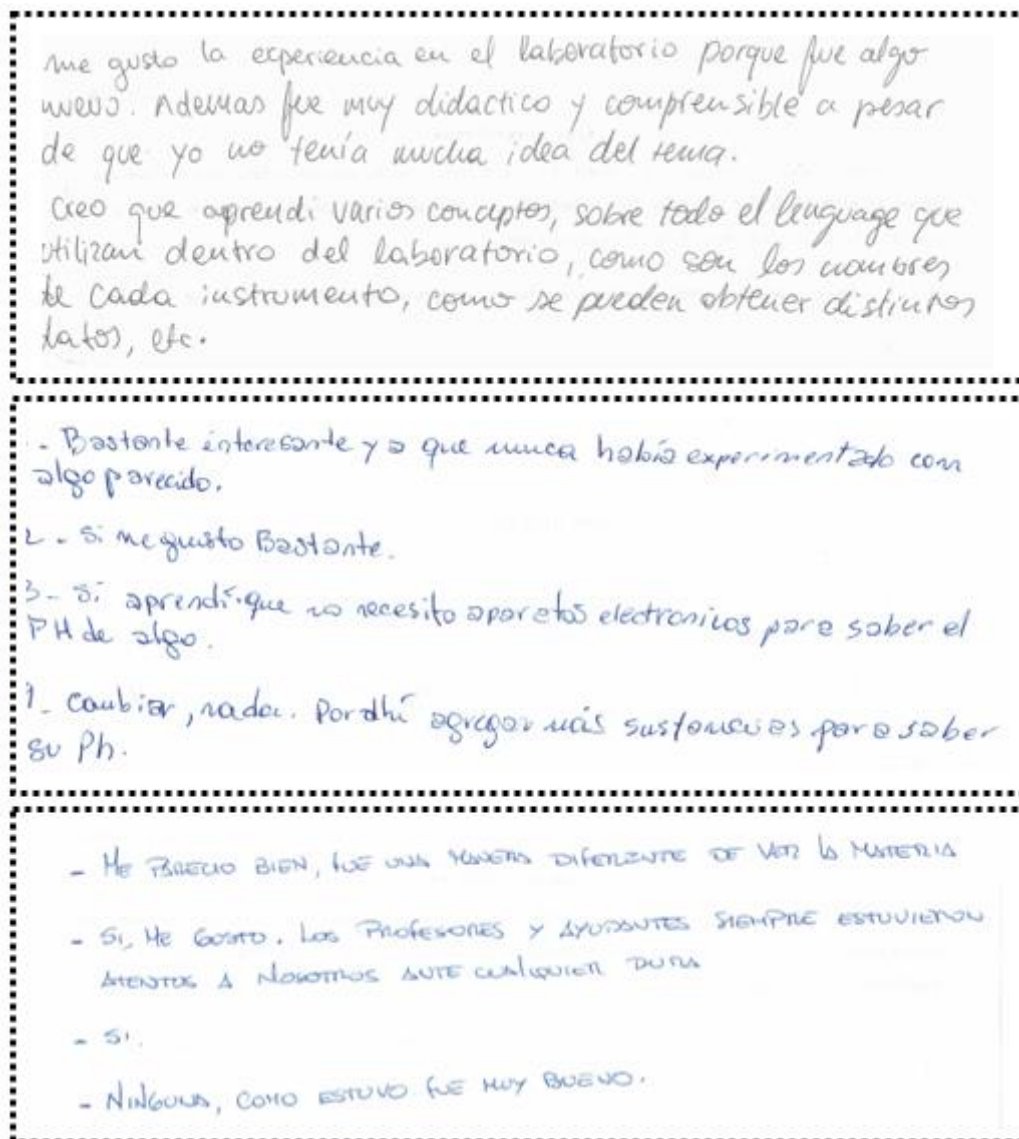 me gusto la experiencia en el laboratorio porque fue algo
nuevo. Ademas fue muy didactico y comprensible a pesar
de que yo no tenía mucha idea del tema.
Creo que aprendi varios conceptos, sobre todo el lenguage que
utilizan dentro del laboratorio, como son los nombres
de cada instrumento, como se pueden obtener distintos
datos, etc.
- Bastante interesante ya que nunca había experimentado con
algo parecido.
2 - Si me gusto Bastante.
3 - Si aprendí que no necesito aparatos electronicos para saber el
PH de algo.
- Cambiar, nada. Por ahí agregar más sustancias para saber
su Ph.
- ME PARECIO BIEN, FUE UNA MANERA DIFERENTE DE VER LA MATERIA
- SI, ME GUSTO. LOS PROFESORES Y AYUDANTES SIEMPRE ESTUVIERON
ATENTOS A NOSOTROS ANTE CUALQUIER DUDA
- SI.
- NINGUNA, COMO ESTUVO FUE MUY BUENO.